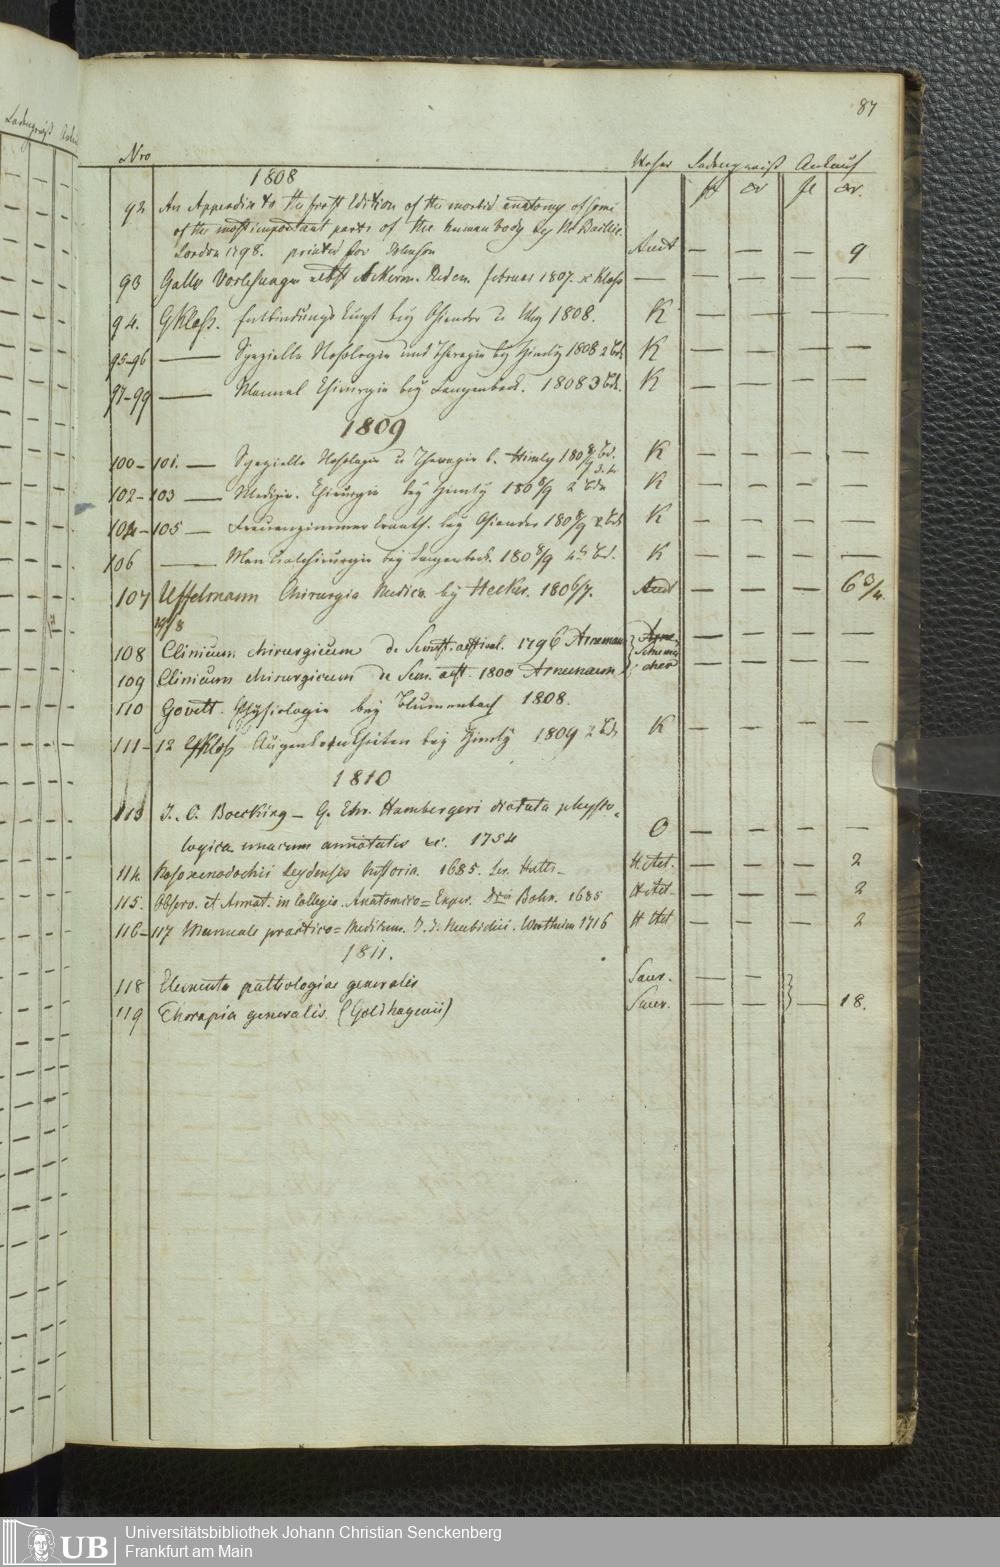 Ladenpreiß
87
Nro Woher Ladenpreiß Ankauf
fl xr fl xr.
1808
92 An Appendix to the first Edition of the morbid anatomy of some
of the most important parts of the human body by M. Baillie.
London 1798. printed for Johnson Auct — — — 9
93 Galls Vorlesungen nebst Ackerm. Februar 1807. Kloß — — — — —
94. GKloß. Entbindungs Kunst bey Osiander 1808. K — — — —
95-96 —— Spezielle Nosologie und Therapie bey Himly 1808 2 Bd. K — — — —
97-99 —— Manual Chirurgie bey Langenbeck. 1808 3 Bd. K — — — —
1809
100-101. — Spezielle Nosologie u Therapie b. Himly 1808/9 Bd. 3. 4 K — — — —
102-103 —— Medizin. Chirurgie bey Himly 1808/9 2 Bde K — — — —
104-105 — Frauenzimmer Krankh. bey Osiander 1808/9 2 Bd. K — — — —
106 —— Manualchirurgie bey Langenbeck. 1808/9 4t Bd. K — — — —
107 Uffelmann Chirurgia Medica bey Hecker. 1806/7. Auct — — — 6 3/4.
108 Clinicum chirurgicum de Semestr. aestival. 1796 Arneman — — — —
109 Clinicum chirurgicum de Sem. aest. 1800 Arnemann — — — —
110 Govett. Physiologie bey Blumenbach 1808.
111-12 GKloß Augenkrankheiten bey Himly 1809 2 Bd. K — — — —
1810
113 J. C. Boecking — G. Ehr. Hambergeri dictata physio-
logica unacum annotatis 1754 O — — — —
114. Nosoxenodochii Leydensis historia. 1685. H. Act. — — — 2
115. Observ. et Annot. in Collegio. Anatomico = Exper. Dni Bohn. 1685 H. Act — — — 2
116-117 Manuale practico = Medicum. D. J. 1716 H Act — — — 2
1811.
118 Elementa pathologiae generalis Saur. — —
119 Therapia generalis. (Goldhagenii) Saur. — — — 18.
UB
Universitätsbibliothek Johann Christian Senckenberg
Frankfurt am Main